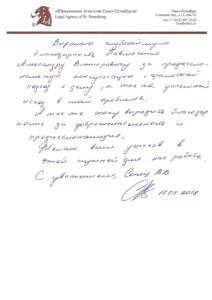 «Юридическое Агентство Санкт-Петербурга»
Legal Agency of St. Petersburg
Санкт-Петербург
Выражаю глубочайшую
благодарность Павлюченко
Александру Викторовичу за профессио-
нальную консультацию, грамотный
подход к делу, а так же успешный
исход в моей проблеме.
А так же хочу выразить благодар
ность за доброжелательность и
профессионализм.
Желаю вам успехов в
этой нужной для нас работе
С уважением,